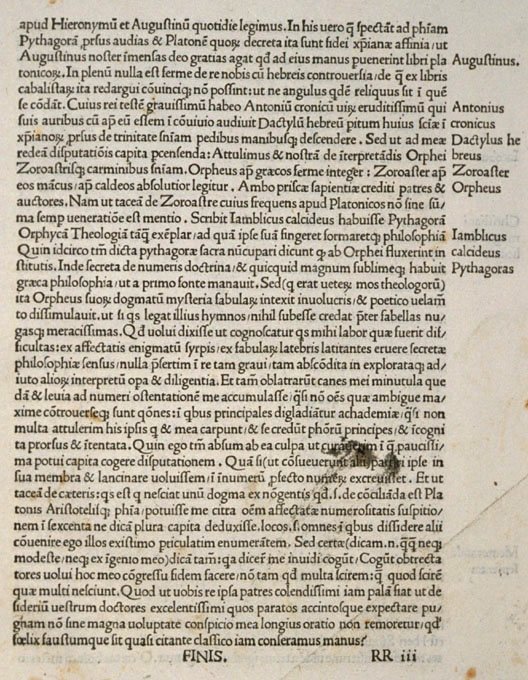 apud Hieronymū et Augustinū quotidie legimus. In his uero q̄ spectāt ad phiam
Pythagorā ꝓrsus audias & Platonē quoꝝ decreta ita sunt fidei xp̄ianæ affinia/ut
Augustinus noster īmensas deo gratias agat qd̄ ad eius manus puenerint libri pla
tonicoꝝ. In plenū nulla est ferme de re nobis cū hebreis controuersia/de q̄ ex libris
cabalistaꝝ ita redargui cōuinciq; nō possint: ut ne angulus qdē reliquus sit ī quē
se cōdāt. Cuius rei testē grauissimū habeo Antoniū cronicū uiꝝ eruditissimū qui
suis auribus cū ap̄ eū essem ī cōuiuio audiuit Dactylū hebreū pitum huius sciæ ī
xp̄ianoꝝ ꝓrsus de trinitate sn̄iam pedibus manibusq; descendere. Sed ut ad meæ
redeā disputatiōis capita pcensenda: Attulimus & nostrā de īterpretādis Orphei
Zoroastrisq; carminibus sniam. Orpheus ap̄ græcos ferme integer: Zoroaster ap̄
eos mācus/ap̄ caldeos absolutior legitur. Ambo priscæ sapientiæ crediti patres &
auctores. Nam ut taceā de Zoroastre cuius frequens apud Platonicos nō sine sū/
ma semp ueneratiōe est mentio. Scribit Iamblicus calcideus habuisse Pythagorā
Orphycā Theologiā tāq̄ exēplar/ad quā ipse suā fingeret formaretq; philosophiā
Quin idcirco tm̄ dicta pythagoræ sacra nūcupari dicunt q; ab Orphei fluxerint in
stitutis. Inde secreta de numeris doctrina/& quicquid magnum sublimeq; habuit
græca philosophia/ut a primo fonte manauit. Sed (q erat ueteꝝ mos theologorū)
ita Orpheus suoꝝ dogmatū mysteria fabulaꝝ intexit inuolucris/& poetico uelam̄
to dissimulauit. ut si qs legat illius hymnos/nihil subesse credat pr̄ter fabellas nu/
gasq; meracissimas. Qd̄ uolui dixisse ut cognoscatur qs mihi labor quæ fuerit dif/
ficultas: ex affectatis enigmatū syrpis/ex fabulaꝝ latebris latitantes eruere secretæ
philosophiæ sensus/nulla p̄sertim ī re tam graui/tam abscōdita in explorataq; ad/
iuto alioꝝ interpretū opa & diligentia. Et tam̄ oblatrarūt canes mei minutula que
dā & leuia ad numeri ostentationē me accumulasse/q̄si nō oēs quæ ambigue ma/
xime cōtrouerseq; sunt qōnes: ī qbus principales digladiātur achademiæ/q̄si non
multa attulerim his ipsis q & mea carpunt/& se credūt phōrū principes/& īcogni
ta prorsus & ītentata. Quin ego tm̄ absum ab ea culpa ut curauerim ī q̄ paucissi/
ma potui capita cogere disputationem. Quā si (ut cōsueuerunt alii) partiri ipse in
sua membra & lancinare uoluissem/ī inumerū ꝓfecto numeꝝ excreuisset. Et ut
taceā de cæteris: qs est q nesciat unū dogma ex nōgentis qd̄.s. de cōciliāda est Pla
tonis Aristotelisq; phia/potuisse me citra oēm affectatæ numerositatis suspitio/
nem ī sexcenta ne dicā plura capita deduxisse. locos.s. omnes ī qbus dissidere alii
cōuenire ego illos existimo priculatim enumerātem. Sed certæ (dicam.n.q̄q̄ neq;
modeste/neq; ex īgenio meo) dicā tam̄: qa dicer̄ me inuidi cogūt/Cogūt obtrecta
tores uolui hoc meo cōgressu fidem facere/nō tam qd̄ multa scirem: q quod scirē
quæ multi nesciunt. Quod ut uobis re ipsa patres colendissimi iam palā fiat ut de
sideriū uestrum doctores excelentissimi quos paratos accintosque expectare pu/
gnam nō sine magna uoluptate conspicio mea longius oratio non remoretur/qd̄
fœlix faustumque sit quasi citante classico iam conseramus manus?
FINIS. RR iii
Augustinus.
Antonius
cronicus
Dactylus he
breus
Zoroaster
Orpheus
Iamblicus
calcideus
Pythagoras